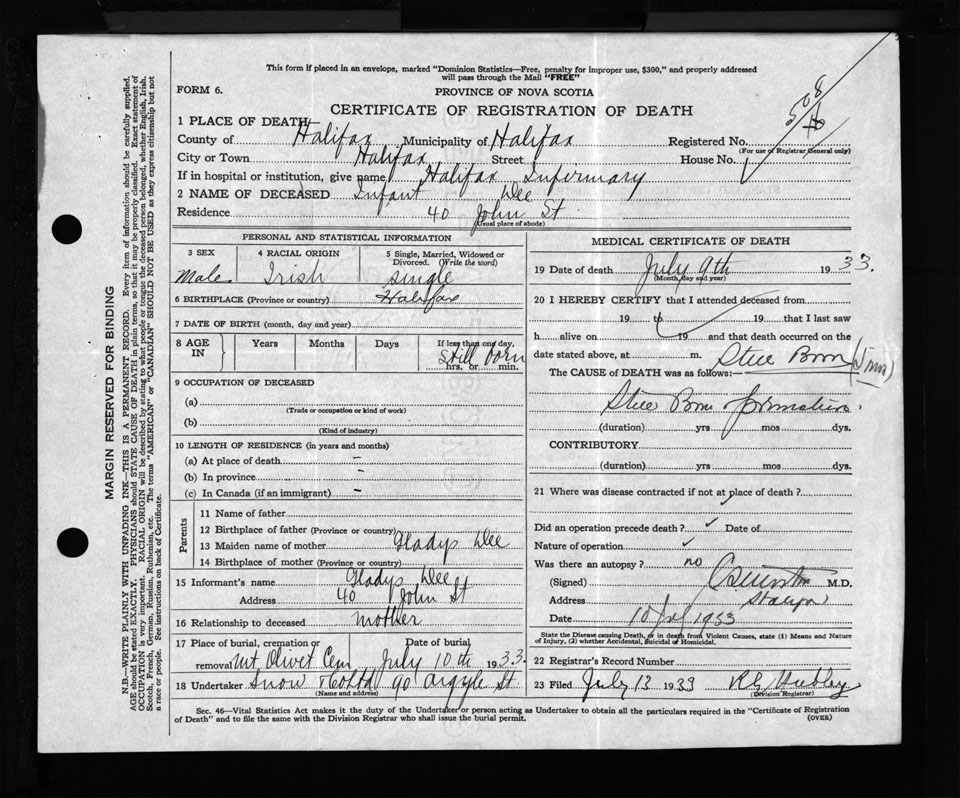 This form if placed in an envelope, marked "Dominion Statistics—Free, penalty for improper use, $300," and properly addressed
will pass through the Mail "FREE"
FORM 6.
PROVINCE OF NOVA SCOTIA
CERTIFICATE OF REGISTRATION OF DEATH
508
1 PLACE OF DEATH
County of Halifax Municipality of Halifax Registered No.
(For use of Registrar General only)
City or Town Halifax Street House No.
If in hospital or institution, give name Halifax Infirmary
2 NAME OF DECEASED Infant Dee
Residence 40 John St
(Usual place of abode)
PERSONAL AND STATISTICAL INFORMATION
3 SEX 4 RACIAL ORIGIN 5 Single, Married, Widowed or Divorced. (Write the word)
Male Irish single
6 BIRTHPLACE (Province or country) Halifax
7 DATE OF BIRTH (month, day and year)
8 AGE IN Years Months Days If less than one day,
still born
hrs. or min.
9 OCCUPATION OF DECEASED
(a)
(Trade or occupation or kind of work)
(b)
(Kind of industry)
10 LENGTH OF RESIDENCE (in years and months)
(a) At place of death —
(b) In province —
(c) In Canada (if an immigrant) —
Parents
11 Name of father
12 Birthplace of father (Province or country)
13 Maiden name of mother Gladys Dee
14 Birthplace of mother (Province or country)
15 Informant's name Gladys Dee
Address 40 John St
16 Relationship to deceased mother
17 Place of burial, cremation or removal Mt Olivet Cem Date of burial July 10th 1933.
18 Undertaker Snow & Co Ltd 90 Argyle St
(Name and address)
MEDICAL CERTIFICATE OF DEATH
19 Date of death July 9th 1933.
(Month, day and year)
20 I HEREBY CERTIFY that I attended deceased from
19 to 19 that I last saw
h alive on 19 and that death occurred on the
date stated above, at m. Still Born
The CAUSE of DEATH was as follows:—
Still Born
(duration) yrs mos dys.
CONTRIBUTORY
(duration) yrs mos dys.
21 Where was disease contracted if not at place of death?
Did an operation precede death? ✓ Date of
Nature of operation ✓
Was there an autopsy? no
(Signed) M.D.
Address
Date 10 1933
State the Disease causing Death, or in death from Violent Causes, state (1) Means and Nature
of Injury, (2) whether Accidental, Suicidal or Homicidal.
22 Registrar's Record Number
23 Filed July 13 1933
(Division Registrar)
Sec. 46—Vital Statistics Act makes it the duty of the Undertaker or person acting as Undertaker to obtain all the particulars required in the "Certificate of Registration
of Death" and to file the same with the Division Registrar who shall issue the burial permit.
(OVER)
MARGIN RESERVED FOR BINDING
N.B—WRITE PLAINLY WITH UNFADING INK—THIS IS A PERMANENT RECORD. Every item of information should be carefully supplied.
AGE should be stated EXACTLY. PHYSICIANS should STATE CAUSE OF DEATH in plain terms, so that it may be properly classified. Exact statement of
OCCUPATION is very important. RACIAL ORIGIN will be described by stating to what people or tongue the deceased person belonged, whether English, Irish,
Scotch, French, German, Russian, Ruthenian, etc. The terms "AMERICAN" or "CANADIAN" SHOULD NOT BE USED as they express citizenship but not
a race or people. See instructions on back of Certificate.